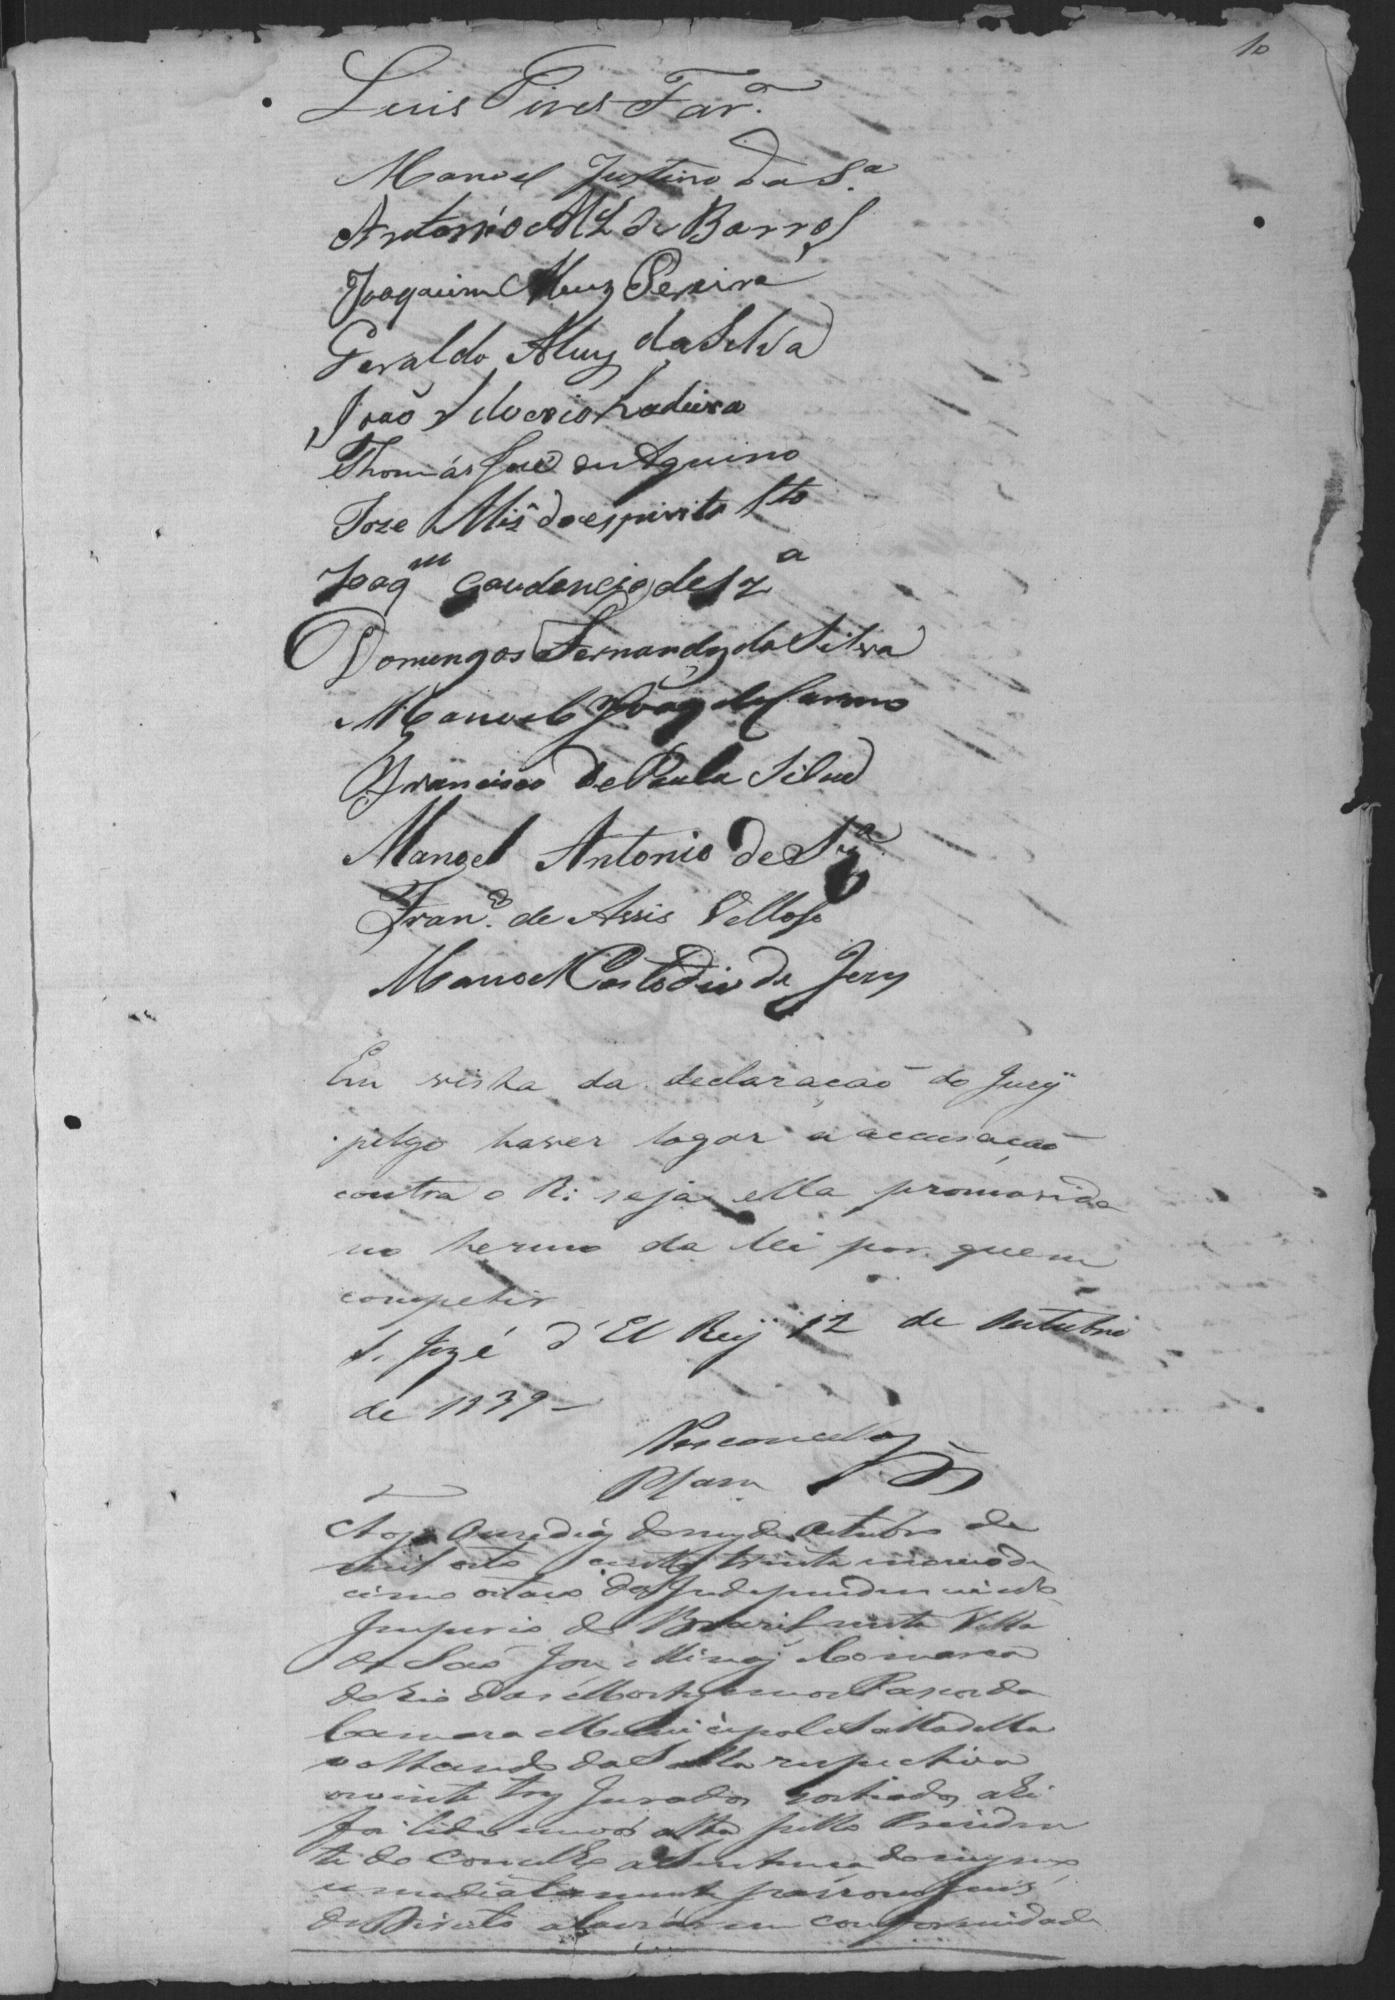 10
Luis Pires Far.ª
Manoel Justino da S.ª
Antonio Alz de Barros
Joaquim Alvz Pereira
Geraldo Alvz da Silva
João Silverio Ladeira
Thomás José de Aquino
Joze Miz do espirito Sto
Joaqm Gaudencio de Sza
Domingos Fernandz da Silva
Manoel João do Carmo
Francisco de Paula Silva
Manoel Antonio de Sza
Fran.co de Assis Velloso
Manoel Custodio de Jezus
Em vista da declaração do Jury
julgo haver logar a accusação
contra o R. seja ella promovida
no termo da Lei por quem
competir
S. Jozé d'El Rey 12 de Outubro
de 1839 —
Vasconcellos
Aos doze dias do mez de Outubro de
mil oito centos trinta e nove de
cimo oitavo da Independencia do
Imperio do Brazil nesta Villa
de São Joze Minas e Comarca
do Rio das Mortes em os Paços da
Camara Municipal e Salla della
voltando da Salla respectiva
os vinte tres Jurados sorteados ahi
foi lida em vós alta pello Presiden
te do Concelho a Sentença do mesmo
e immediatamente passou o Juis
de Direito a lavrar em conformidade